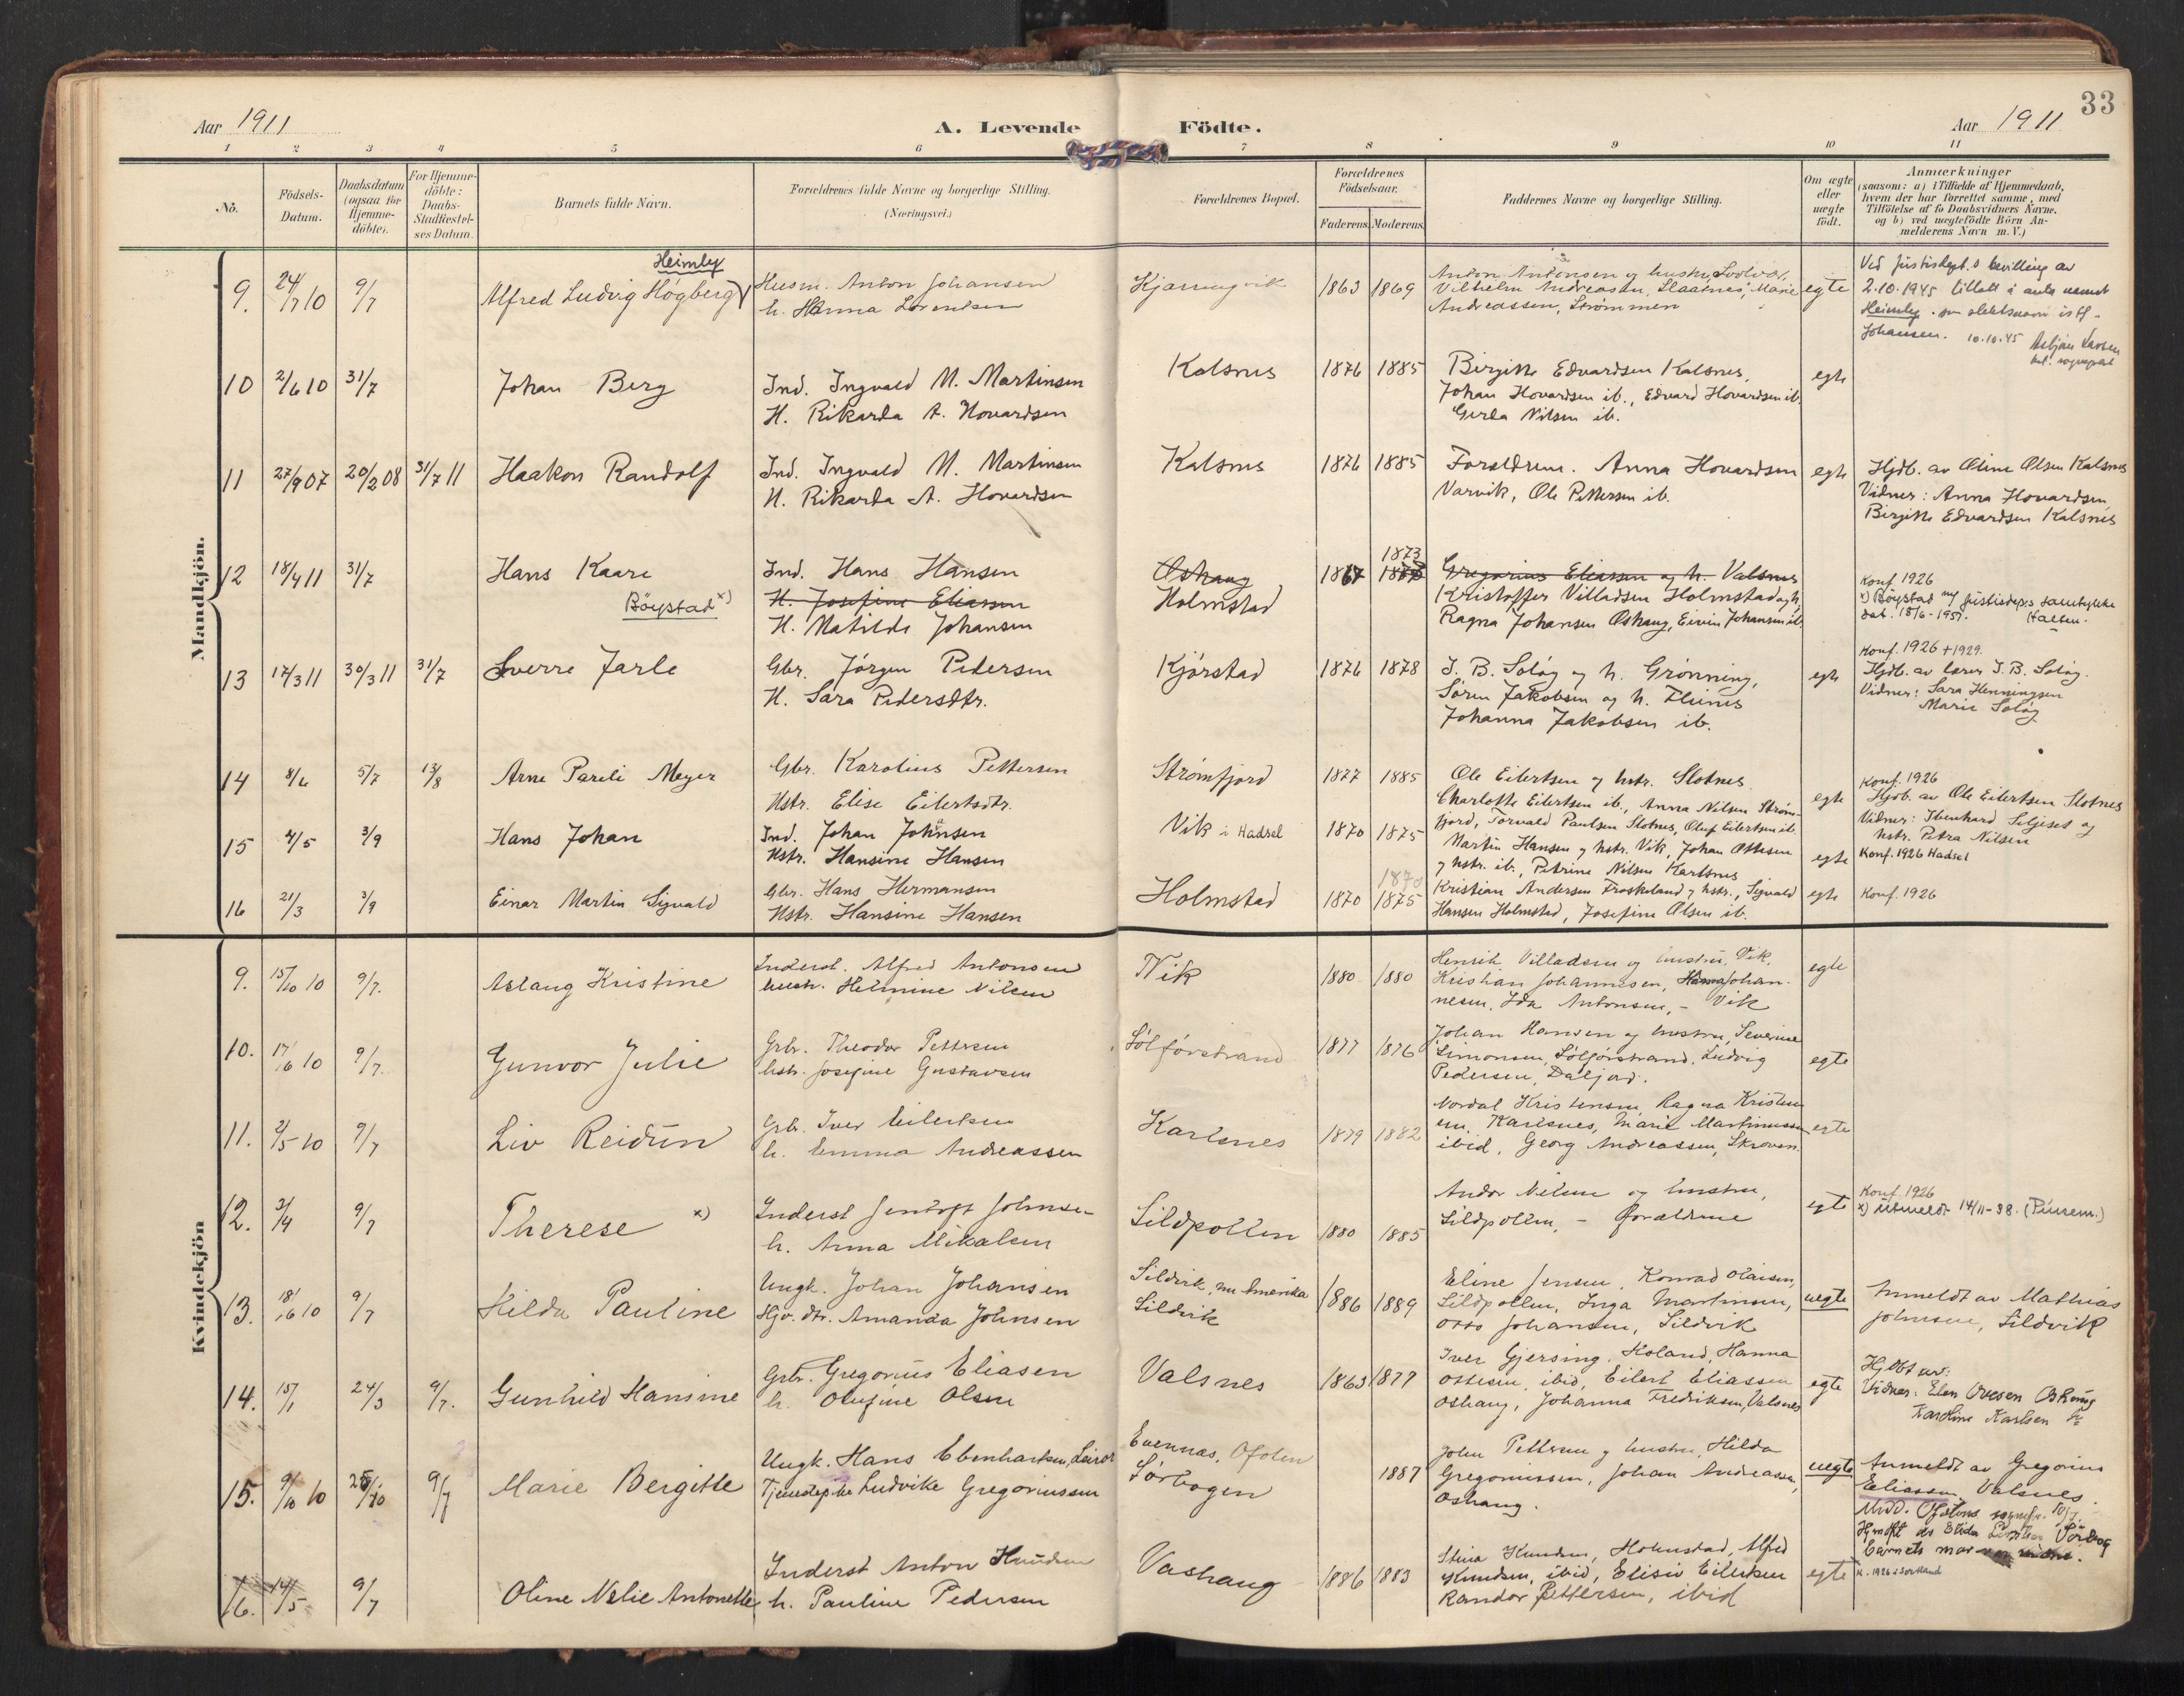 33
Aar 1911 A. Levende Födte. Aar 1911
1 2 3 4 5 6 7 8 9 10 11
No. Födsels-Datum. Daabsdatum (ogsaa for Hjemme-döbte). For Hjemme-döbte: Daabs-Stadfæstel-ses Datum. Barnets fulde Navn. Forældrenes fulde Navne og borgerlige Stilling. (Næringsvei.) Forældrenes Bopæl. Forældrenes Födselsaar. Faderens. Moderens. Faddernes Navne og borgerlige Stilling. Om ægte eller uægte födt. Anmærkninger (saasom: a) i Tilfælde af Hjemmedaab, hvem der har forrettet samme, med Tilföielse af to Daabsvidners Navne, og b) ved uægtefödte Börn Anmelderens Navn m. V.)
Mandkjön.
9. 24/7 10 9/7 Alfred Ludvig Høgberg
Heimly
Husm. Anton Johansen
h. Hanna Lorentsen
Kjørringvik 1863 1869
Anton Antonsen og hustru, Svolvær,
Vilhelm Andreassen, Slaatnes, Marie
Andreassen, Strømmen
egte
Ved justisdept.s bevilling av
2.10.1945 tillatt å anta navnet
Heimly som slektsnavn istf.
Johansen. 10.10.45 Asbjørn Larsen
10 2/6 10 31/7 Johan Berg
Ind. Ingvald M. Martinsen
H. Rikarda A. Hovardsen
Kalsnes 1876 1885
Birgitte Edvardsen Kalsnes,
Johan Hovardsen ib., Edvard Hovardsen ib.
Gerda Nilsen ib.
egte
11 27/9 07 20/2 08 31/7 11 Haakon Randolf
Ind. Ingvald M. Martinsen
H. Rikarda A. Hovardsen
Kalsnes 1876 1885
Forældrene. Anna Hovardsen
Varvik, Ole Pettersen ib.
egte
Hjdb. av Oline Olsen Kalsnes
Vidner: Anna Hovardsen
Birgitte Edvardsen Kalsnes
12 18/4 11 31/7 Hans Kaare
Böystad x)
Ind. Hans Hansen
H. Josefine Eliassen
H. Matilde Johansen
Oshaug
Holmstad
1867 1873
Gregorius Eliassen og h. Valsnes
Kristoffer Villadsen Holmstad og h,
Ragna Johansen Oshaug, Eivin Johansen ib.
Konf. 1926
x) Böystad mf justisdep.s samtykke
dat. 18/6-1951.
13 17/3 11 30/3 11 31/7 Sverre Jarle
Gbr. Jörgen Pedersen
H. Sara Pedersdtr.
Kjörstad 1876 1878
J. B. Solöy og h. Grönning,
Sören Jakobsen og h. Flunes
Johanna Jakobsen ib.
egte
Konf. 1926 +1929.
Hjdb. av lærer J. B. Solöy.
Vidner: Sara Henningsen
Marie Solöy
14 8/6 5/7 13/8 Arne Pareli Meyer
Gbr. Karolius Pettersen
Hstr. Elise Eilertsdtr.
Strömfjord 1877 1885
Ole Eilertsen og hstr. Slotnes
Charlotte Eilertsen ib., Anna Nilsen Ström-
fjord, Torvald Paulsen Slotnes, Oluf Eilertsen ib.
egte
Konf. 1926
Hjdb. av Ole Eilertsen Slotnes
Vidner: Ibenhard Seljeset og
hstr. Petra Nilsen
15 4/5 3/9 Hans Johan
Ind. Johan Johnsen
Hstr. Hansine Hansen
Vik i Hadsel 1870 1875
Martin Hansen og hstr. Vik, Johan Ottesen
og hstr. ib., Petrine Nilsen Karlsnes
egte
Konf. 1926 Hadsel
16 21/3 3/9 Einar Martin Sigvald
Gbr. Hans Hermansen
Hstr. Hansine Hansen
Holmstad 1870 1875
1870
Kristian Andersen Froskeland og hstr., Sigvald
Hansen Holmstad, Josefine Olsen ib.
egte
Konf. 1926
Kvindekjön
9. 15/10 10 9/7. Aslaug Kristine
Inderst. Alfred Antonsen
hustr. Helmine Nilsen
Vik 1880 1880
Henrik Villadsen og hustru, Vik,
Kristian Johannesen, Hanna Johan-
nesen, Ida Antonsen, - Vik
egte
10. 17/6 10 9/7. Gunvor Julie
Grbr. Theodor Pettersen
hstr. Josefine Gustavsen
Sölförstrand 1877 1876
Johan Hansen og hustru, Severine
Simonsen, Sölförstrand, Ludvig
Pedersen, Daljord.
egte
11. 2/5 10 9/7 Liv Reidun
Grbr. Iver Eilertsen
h. Emma Andreassen
Karlsnes 1879 1882
Nordal Kristensen, Ragna Kristen-
sen, Karlsnes, Marie Martinussen
ibid, Georg Andreassen, Skroven.
egte
12. 3/4 9/7 Therese x)
Inderst Jentoft Johnsen
h. Anna Mikalsen
Sildpollen 1880 1885
Andor Nilsen og hustru,
Sildpollen, - Forældrene
egte
Konf. 1926
x) Utmeldt 14/11-38. (Pinsem.)
13. 18/6 10 9/7 Hilda Pauline
Ungk. Johan Johansen
Hjv. dtr. Amanda Johnsen
Sildvik, nu Amerika
Sildvik
1886 1889
Eline Jensen, Konrad Olaisen,
Sildpollen, Inga Martinsen,
Otto Johansen, Sildvik
uegte
Anmeldt av Mathias
Johnsen, Sildvik
14. 15/1 24/3 9/7. Gunhild Hansine
Grbr. Gregorius Eliasen
h. Olufine Olsen
Valsnes 1863 1877
Iver Gjersing, Holand, Hanna
Ottesen, ibid, Eilert Eliassen
Oshaug, Johanna Fredriksen, Valsnes
egte
Hjdbt av:
Vidner: Elen Ovesen Oshaug
Karoline Karlsen
15. 9/10 10 25/10 9/7 Marie Bergitte
Ungk. Hans Ebenhartsen,
Tjenestepike Ludvike Gregoriussen
Evennas, Ofoten
Sörbogen
1887
John Pettersen og hustru, Hilda
Gregoriussen, Johan Andreassen,
Oshaug.
uegte
Anmeldt av Gregorius
Eliassen, Valsnes.
16. 14/5 9/7 Oline Nelie Antonette
Inderst Anton Knudsen
h. Pauline Pedersen
Vashaug 1886 1883
Stina Knudsen, Holmstad, Alfred
Knudsen, ibid, Elisiv Eilertsen
Randor Pettersen, ibid
egte
K. 1926 i Sortland